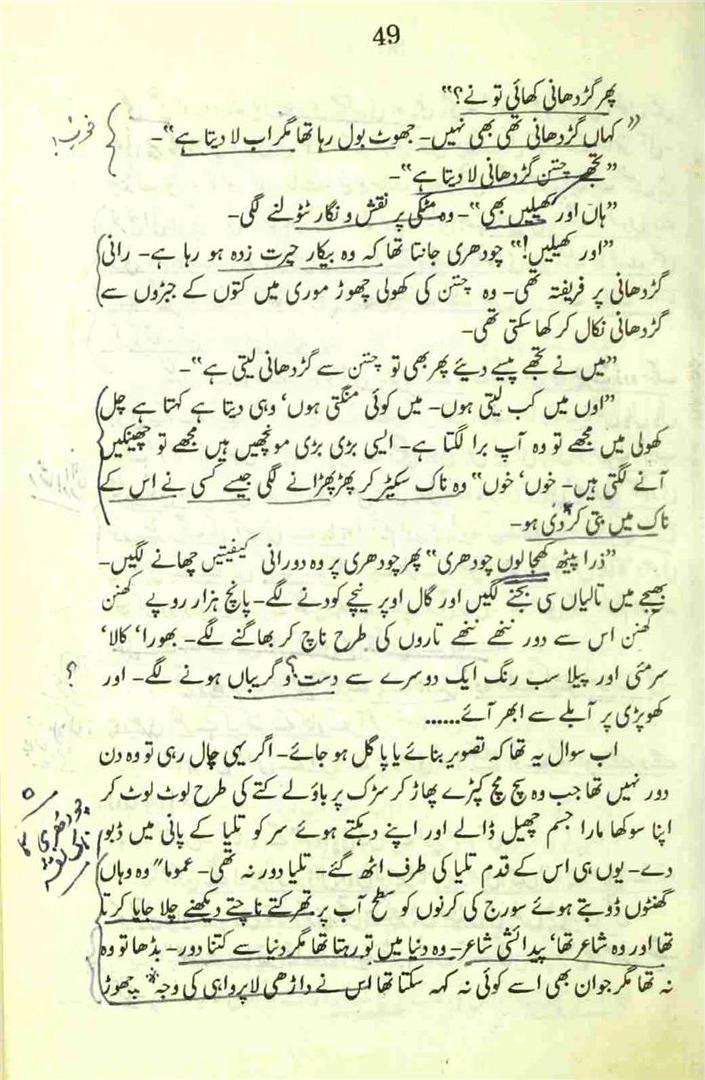 49
پھر گڑدھانی کھائی تو نے؟"
"کہاں گڑدھانی تھی بھی نہیں۔ جھوٹ بول رہا تھا مگر اب لا دیتا ہے"۔
خوب!
"تجھے چتن گڑدھانی لا دیتا ہے"۔
"ہاں اور کھیلیں بھی"۔ وہ مٹکی پر نقش و نگار ٹٹولنے لگی۔
"اور کھیلیں!" چودھری جانتا تھا کہ وہ بیکار حیرت زدہ ہو رہا ہے۔ رانی
گڑدھانی پر فریفتہ تھی۔ وہ چتن کی کھولی چھوڑ موری میں کتوں کے جبڑوں سے
گڑدھانی نکال کر کھا سکتی تھی۔
"میں نے تجھے پیسے دیئے پھر بھی تو چتن سے گڑدھانی لیتی ہے"۔
"اوں میں کب لیتی ہوں۔ میں کوئی منگتی ہوں' وہی دیتا ہے کہتا ہے چل
کھولی میں مجھے تو وہ آپ برا لگتا ہے۔ ایسی بڑی بڑی مونچھیں ہیں مجھے تو چھینکیں
آنے لگتی ہیں۔ خوں' خوں" وہ ناک سکیڑ کر پھڑپھڑانے لگی جیسے کسی نے اس کے
ناک میں بتی کر دی ہو۔
"ذرا پیٹھ کھجا لوں چودھری" پھر چودھری پر وہ دورانی کیفیتیں چھانے لگیں۔
بھیجے میں تالیاں سی بجنے لگیں اور گال اوپر نیچے کودنے لگے۔ پانچ ہزار روپے کھنن
کھنن اس سے دور ننھے ننھے تاروں کی طرح ناچ کر بھاگنے لگے۔ بھورا' کالا'
سرمئی اور پیلا سب رنگ ایک دوسرے سے دست و گریباں ہونے لگے۔ اور
؟
کھوپڑی پر آبلے سے ابھر آئے......
اب سوال یہ تھا کہ تصویر بنائے یا پاگل ہو جائے۔ اگر یہی چال رہی تو وہ دن
دور نہیں تھا جب وہ سچ مچ کپڑے پھاڑ کر سڑک پر باؤلے کتے کی طرح لوٹ لوٹ کر
اپنا سوکھا مارا جسم چھیل ڈالے اور اپنے دہکتے ہوئے سر کو تلیا کے پانی میں ڈبو
چودھری کا
دے۔ یوں ہی اس کے قدم تلیا کی طرف اٹھ گئے۔ تلیا دور نہ تھی۔ عموما" وہ وہاں
گھنٹوں ڈوبتے ہوئے سورج کی کرنوں کو سطح آب پر تھرکتے ناچتے دیکھنے چلا جایا کرتا
تھا اور وہ شاعر تھا' پیدائشی شاعر۔ وہ دنیا میں تو رہتا تھا مگر دنیا سے کتنا دور۔ بڈھا تو وہ
نہ تھا مگر جوان بھی اسے کوئی نہ کہہ سکتا تھا اس نے داڑھی لاپرواہی کی وجہ چھوڑ